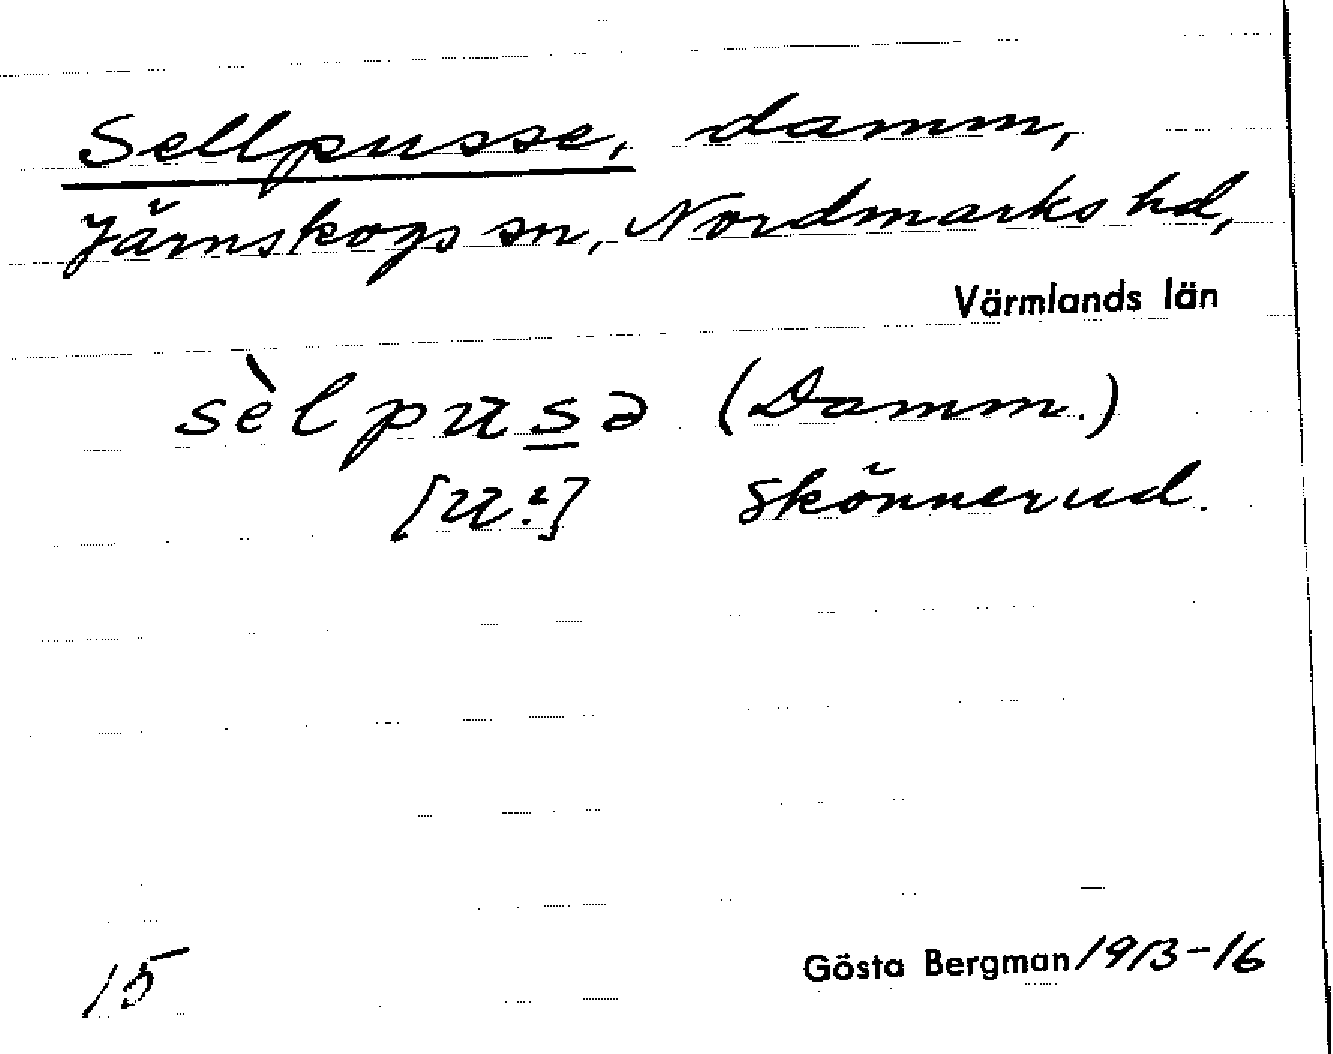 Sellpusse, damm,
Järnskogs sn, Nordmarks hd,
Värmlands län
sèlpusə (Damm.)
[u:] Skönnerud.
15
Gösta Bergman 1913-16